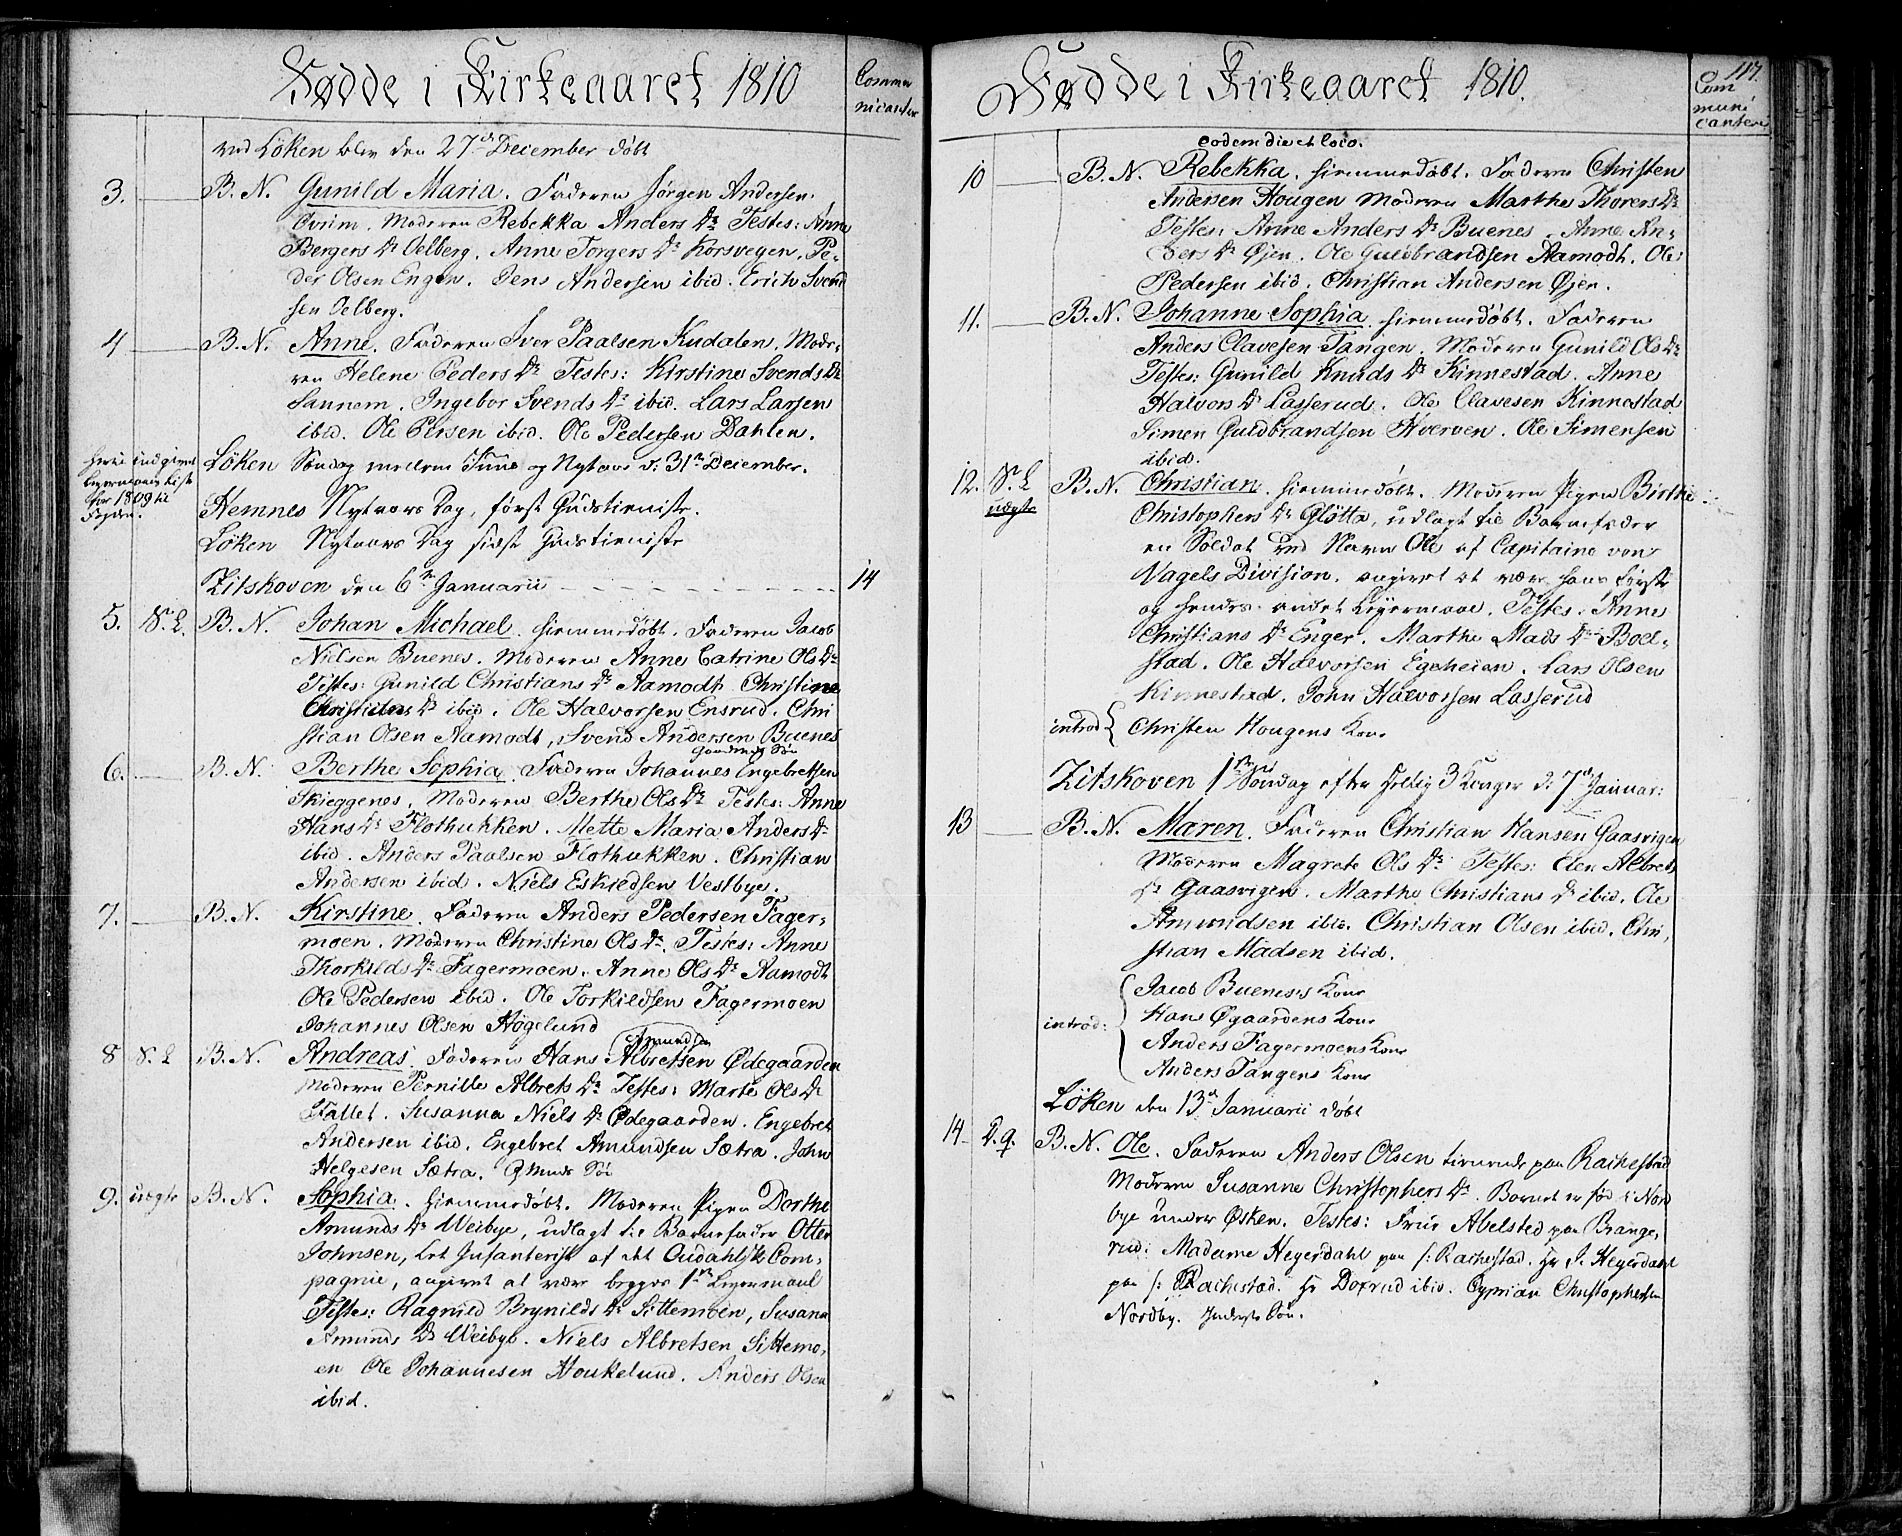 Fødde i Kirkeaaret 1810
Commu
nicanter
ved Löken blev den 27de December döbt
3. B. N. Gunild Maria. Faderen Jörgen Andersen
Moderen Rebekka Anders Dr Testes: Anne
Bergers Dr Oelberg. Anne Torgers Dr Korsvegen. Pe-
der Olsen Engen. Jens Andersen ibid. Erich Svend
sen Oelberg.
4 B. N. Anne. Faderen Iver Paalsen Kudalen. Mode-
ren Helene Peders Dr Testes: Kirstine Svends Dr
Sannem. Ingebor Svends Dr ibid. Lars Larsen
ibid. Ole Persen ibid. Ole Pedersen Dahlen.
Löken Söndag mellem Juul og Nytaar d: 31te December.
herti indgivet
Leyermaals Liste
for 1809 til
Fogden.
Hemnes Nytaars Dag, först Gudstieniste.
Löken Nytaars Dag sidst Gudstieniste
Zitskoven den 6te Januarii 14
5. S. L. B. N. Johan Michael. hiemmedöbt. Faderen Jacob
Nielsen Buenes. Moderen Anne Catrine Ols Dr
Testes: Gunild Christians Dr Aamodt Christine
Christians Dr ibid. Ole Halvorsen Ensrud. Chri
stian Olsen Aamodt, Svend Andersen Buenes
Gaardmands Sön
6. B. N. Berthe Sophia. Faderen Johannes Engebretsen
Skieggenes. Moderen Berthe Ols Dr Testes: Anne
Hans Dr Flothukken. Mette Maria Anders Dr
ibid. Anders Paalsen Flothukken. Christian
Andersen ibid. Niels Eskildsen Vestbye.
7. B. N. Kirstine. Faderen Anders Pedersen Fager-
moen. Moderen Christine Ols Dr. Testes: Anne
Thorkilds Dr Fagermoen. Anne Ols Dr Aamodt
Ole Pedersen ibid. Ole Torkildsen Fagermoen
Johannes Olsen Høgelund
Amundsen
8 S. L B. N. Andreas. Faderen Hans Albretsen Ødegaarden
Moderen Pernille Albrets Dr Testes: Marte Ols Dr
Stallet. Susanna Niels Dr Ødegaarden. Engebret
Andersen ibid. Engebret Amundsen Sætra. John
Helgesen Sætra. Gmds Sön
9. uægte B. N. Sophia. hiemmedöbt. Moderen Pigen Dorthe
Amunds Dr Weibye, udlagt til Barnefader Otter
Johnsen, let Infanterist af det Oudahlske Com-
pagnie, angivet at være begges 1ste Leyermaal
Testes: Ragnild Brynilds Dr Sittemoen, Susana
Amunds Dr Weibye. Niels Albretsen Sittemo-
en Ole Johannesen Houkelund. Anders Olsen
ibid.
Fødde i Kirkeaaret 1810.
117.
Com
muni
canter
eodem die et loco.
10 B. N. Rebekka. hiemmedöbt. Faderen Christen
Andersen Hougen Moderen Marthe Thorers Dr
Testes: Anne Anders Dr Buenes. Anne An-
ders Dr Øjen. Ole Guldbrandsen Aamodt. Ole
Pedersen ibid. Christian Andersen Øjen.
11. B. N. Johanne Sophia. hiemmedöbt. Faderen
Anders Clavesen Tangen. Moderen Gunild Ols Dr
Testes: Gunild Knuds Dr Kinnestad. Anne
Halvors Dr Lasserud. Ole Clavesen Kinnestad
Simen Guldbrandsen Hverven. Ole Simensen
ibid.
12. S. L uægte B. N. Christian. hiemmedöbt. Moderen Pigen Birthe
Christophers Dr Glötta, udlagt til Barnefader
en Soldat ved Navn Ole af Capitaine von
Nagels Division. angivet at være hans første
og hendes andet Leyermaal. Testes: Anne
Christians Dr Enger. Marthe Mads Dr Boel-
stad. Ole Halvorsen Egeheien. Lars Olsen
Kinnestad. John Halvorsen Lasserud
introd { Christen Hougens Kone
Zitskoven 1ste Söndag efter Hellig 3 Konger d: 7de Januar:
13 B. N. Maren. Faderen Christian Hansen Gaasvigen
Moderen Magrete Ols Dr Testes: Elen Albrets
Dr Gaasvigen. Marthe Christians Dr ibid. Ole
Amundsen ibid. Christian Olsen ibid. Chri-
stian Madsen ibid.
introd: { Jacob Bueneses Kone
Hans Øgaardens Kone
Anders Fagermoens Kone
Anders Tangens Kone
Löken den 13de Januarii döbt
14. D. q. B. N. Ole. Faderen Anders Olsen tienende paa Rachestad
Moderen Susanne Christophers Dr. Barnet er fød i Nord
bye under Øsken. Testes: Frue Abelsted paa Brange-
rud. Madame Heyerdahl paa s: Rachestad. Hr J. Heyerdahl
paa s: Rachestad. Hr Doxrud ibid. Cyprian Christophersen
Nordby. Inderste Sön.